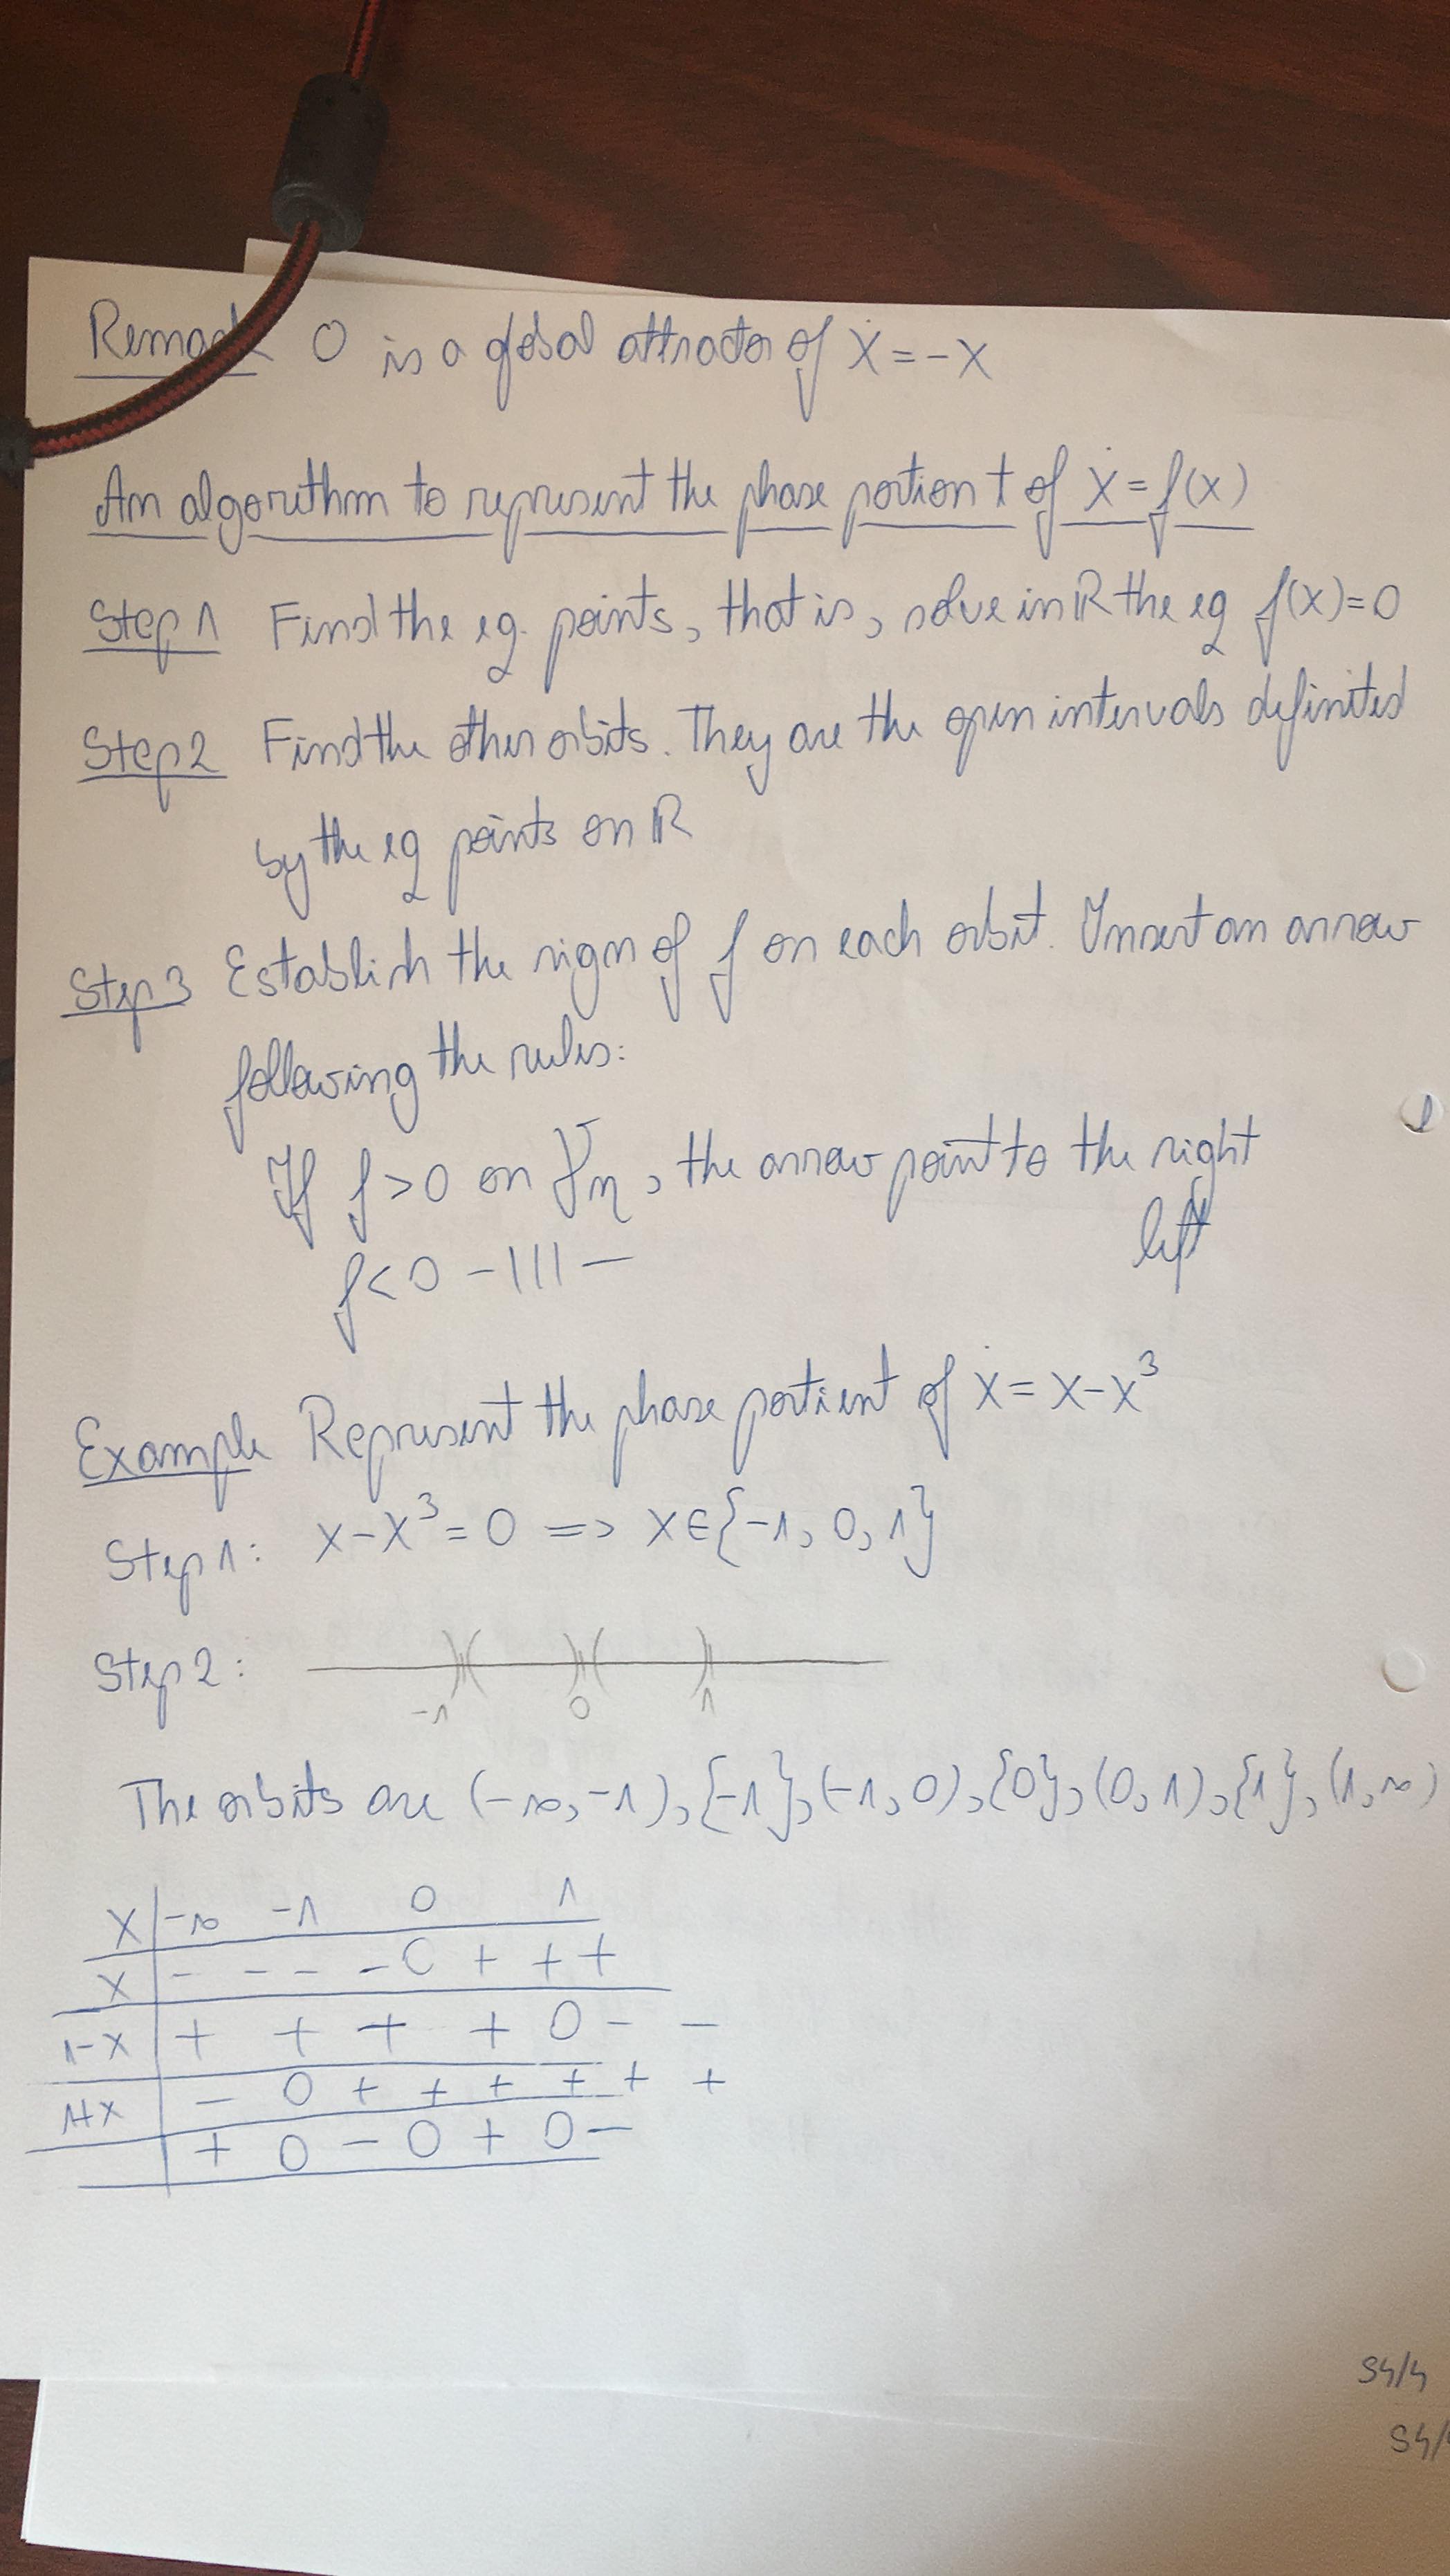 Remark 0 is a global attractor of ẋ = -x
An algorithm to represent the phase portion t of ẋ = f(x)
Step 1 Find the eq. points, that is, solve in ℝ the eq f(x)=0
Step 2 Find the other orbits. They are the open intervals definited
by the eq points on ℝ
Step 3 Establish the sign of f on each orbit. Insert an arrow
following the rules:
If f > 0 on γη, the arrow point to the right
f < 0 -|||- left
Example Represent the phase portient of ẋ = x-x³
Step 1: x-x³ = 0 => x∈{-1, 0, 1}
Step 2:
-1 0 1
The orbits are (-∞,-1), {-1}, (-1, 0), {0}, (0, 1), {1}, (1,∞)
x | -∞ -1 0 1
x | - - - - 0 + + +
1-x | + + + + 0 - -
1+x | - 0 + + + + + +
| + 0 - 0 + 0 -
S4/4
S4/